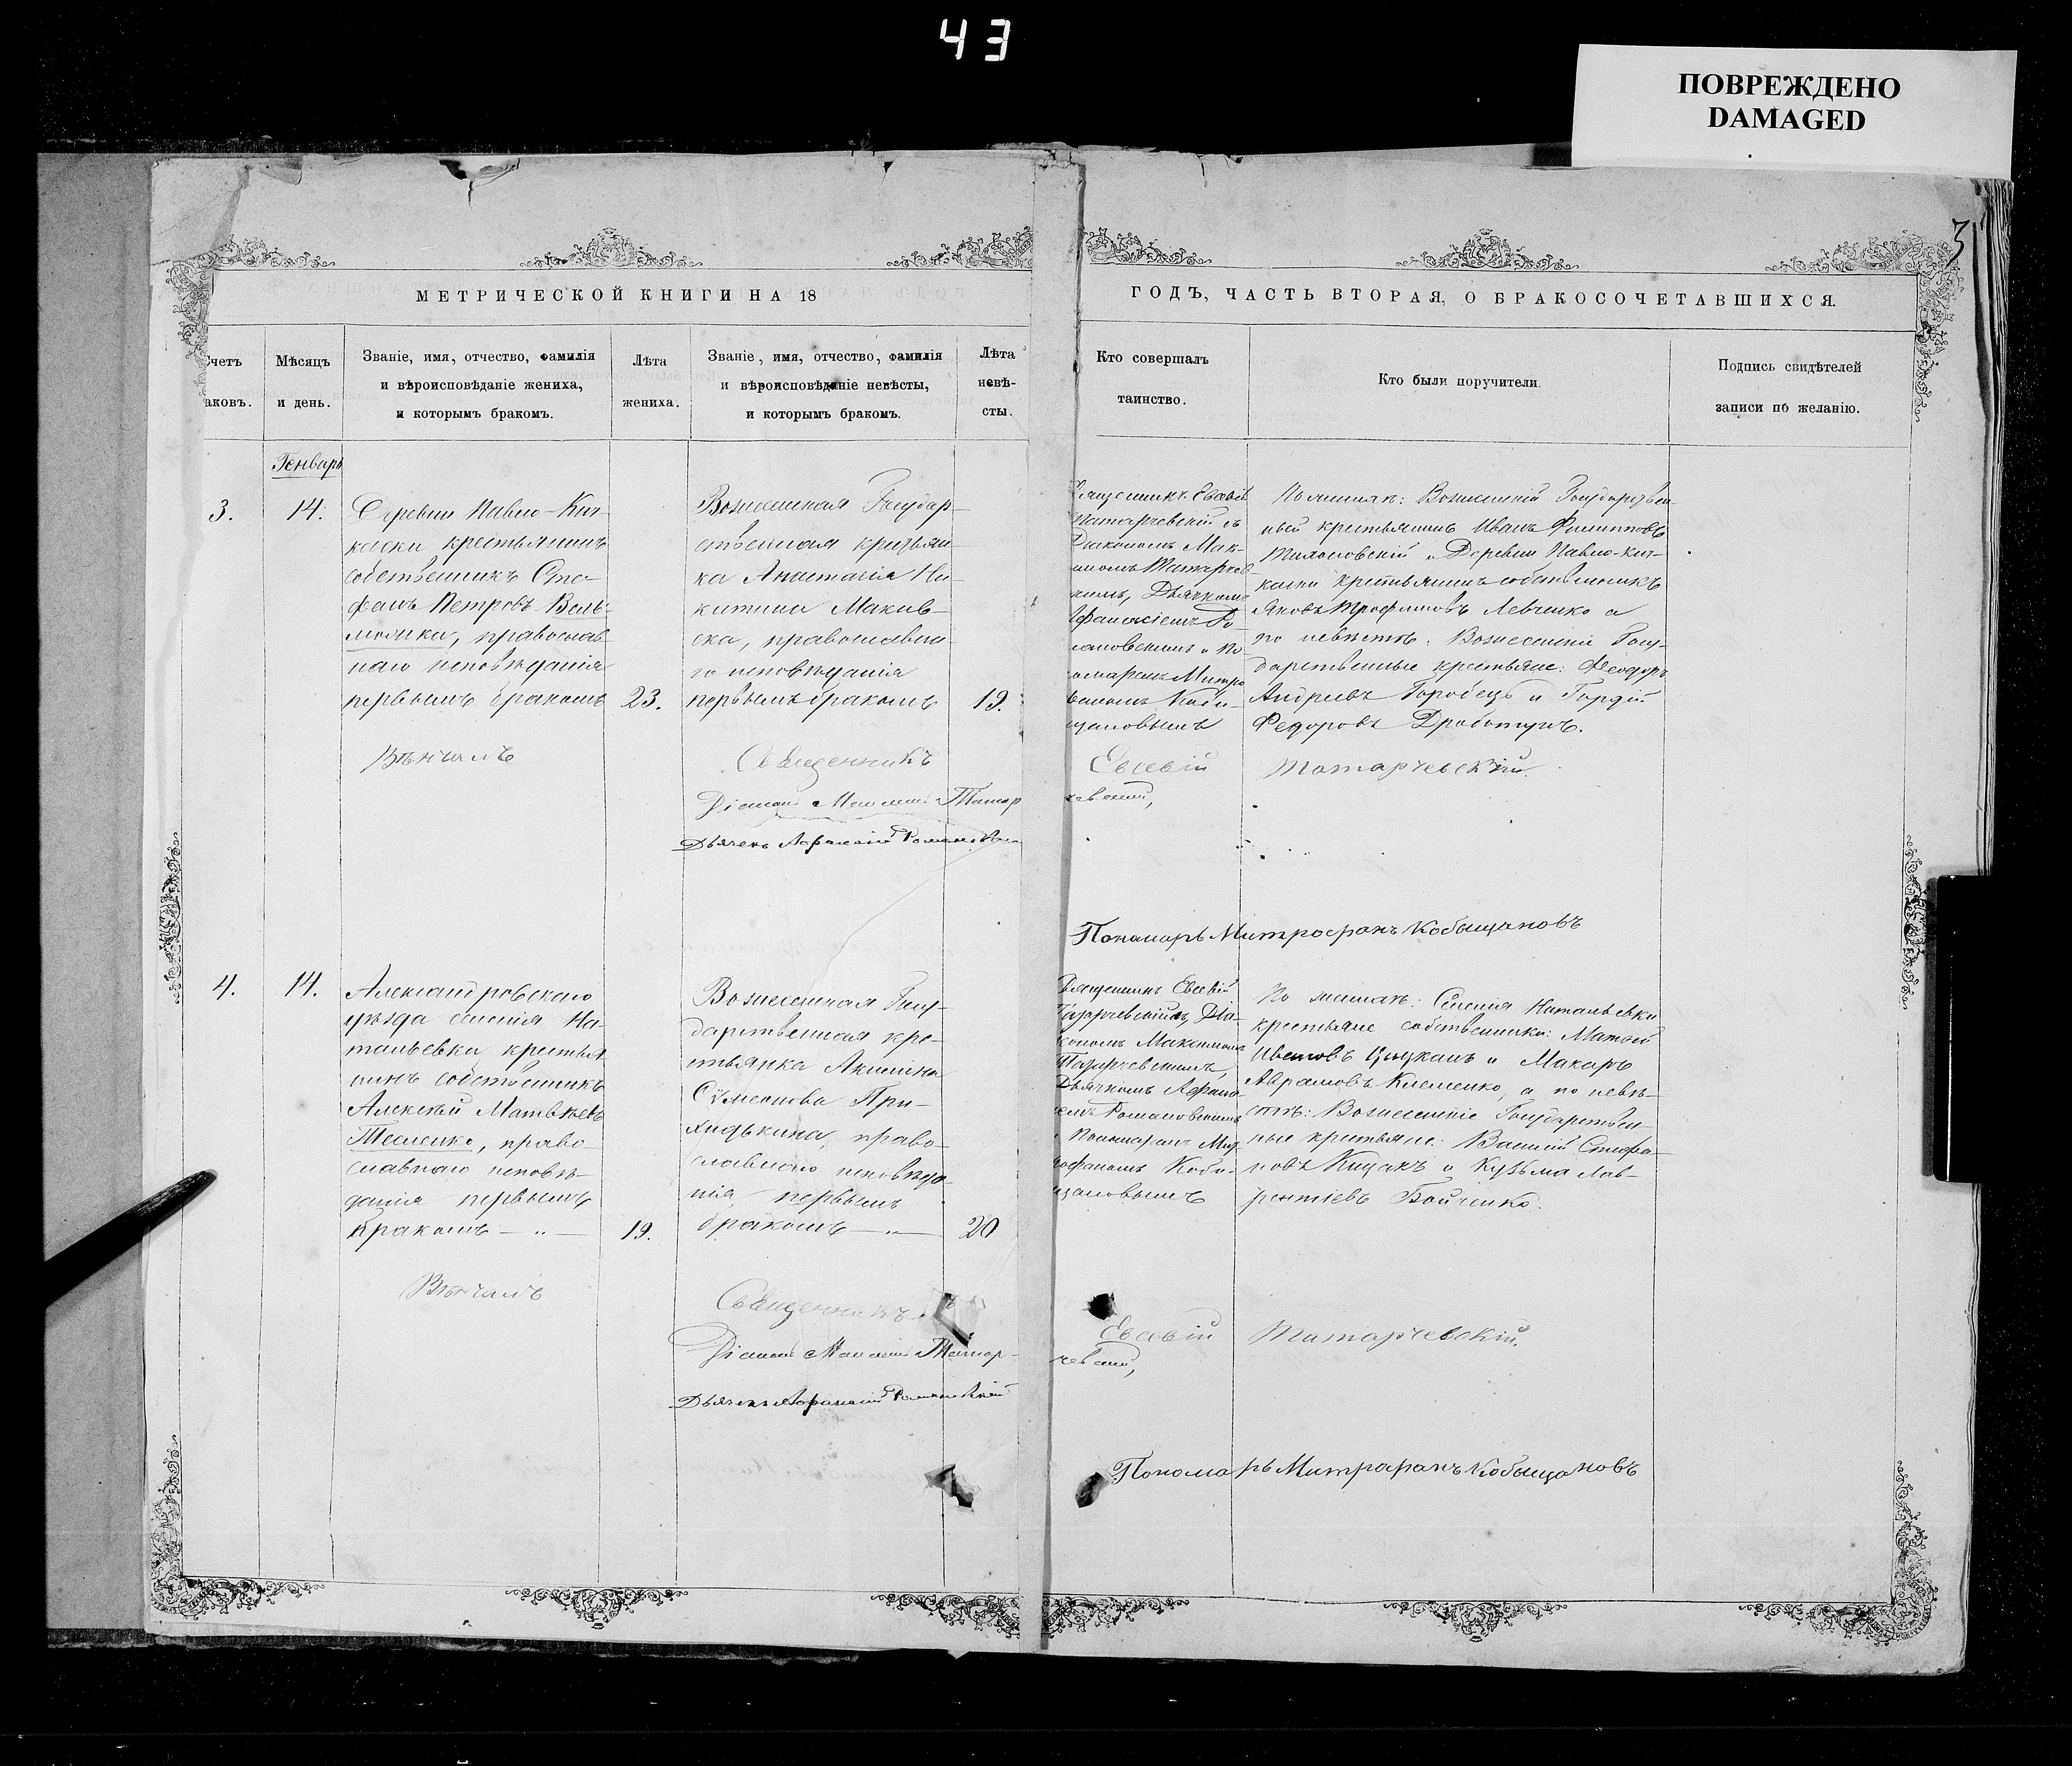 43
ПОВРЕЖДЕНО
DAMAGED
3
МЕТРИЧЕСКОЙ КНИГИ НА 18
ГОДЪ, ЧАСТЬ ВТОРАЯ, О БРАКОСОЧЕТАВШИХСЯ.
четъ
аковъ.
Мѣсяцъ
и день.
Званіе, имя, отчество, фамилія
и вѣроисповѣданіе жениха,
и которымъ бракомъ.
Лѣта
жениха.
Званіе, имя, отчество, фамилія
и вѣроисповѣданіе невѣсты,
и которымъ бракомъ.
Лѣта
невѣ-
сты.
Кто совершалъ
таинство.
Кто были поручители.
Подпись свидѣтелей
записи по желанію.
Генварь
3.
14.
Деревни Павло-Кич-
каски крестьянинъ
собственникъ Сте-
фанъ Петровъ
православ-
наго исповѣданія
первымъ бракомъ
23.
Вознесенская Государ-
ственная крестьян-
ка Анастасія Ни-
китина Макив-
ска, православна-
го исповѣданія
первымъ бракомъ
19.
Священникъ Евсевій
Татарчевскій съ
Діакономъ Мак-
симомъ Татарчев-
скимъ, Дьячкомъ
Афанасіемъ Ро-
мановскимъ и По-
номаремъ Митро
фаномъ Кобы-
щановымъ
По женихѣ: Вознесенскій Государствен-
ный крестьянинъ Иванъ Филипповъ
Тихоновскій и Деревни Павло-Кич-
каски крестьянинъ собственникъ
Яковъ Трофимовъ Левченко а
по невѣстѣ: Вознесенскіе Госу-
дарственные крестьяне: Феодоръ
Андреевъ Горобець и Гордій
Федоровъ Дроботунъ.
Вѣнчалъ Священникъ Евсевій Татарчевскій.
Діаконъ Максимъ Татар
чевскій,
Дьячекъ Афанасій Романовскій
Пономарь Митрофанъ Кобыщановъ
4.
14.
Александровскаго
уѣзда селенія На-
тальевки крестья
нинъ собственникъ
Алексѣй Матвѣевъ
Тесленко, право-
славнаго исповѣ-
данія первымъ
бракомъ — " —
19.
Вознесенская Госу-
дарственная кре-
стьянка Акилина
Сѵмеонова При-
ходькина, право-
славнаго исповѣда-
нія первымъ
бракомъ — " —
20
Священникъ Евсевій
Татарчевскій, Діа-
кономъ Максимомъ
Татарчевскимъ,
Дьячкомъ Афана
емъ Романовскимъ
и Пономаремъ Мит
рофаномъ Кобы-
щановымъ
По женихѣ: Селенія Натальевки
крестьяне собственники: Матвій
Ивановъ Цыцканъ и Макаръ
Аврамовъ Клеменко, а по невѣ-
стѣ: Вознесенскіе Государствен-
ные крестьяне: Василій Стефа-
новъ Кицакъ и Кузьма Лав-
рентіевъ Бойченко.
Вѣнчалъ Священникъ Евсевій Татарчевскій.
Діаконъ Максимъ Татар-
чевскій,
Дьячекъ Афанасій Романовскій
Пономарь Митрофанъ Кобыщановъ